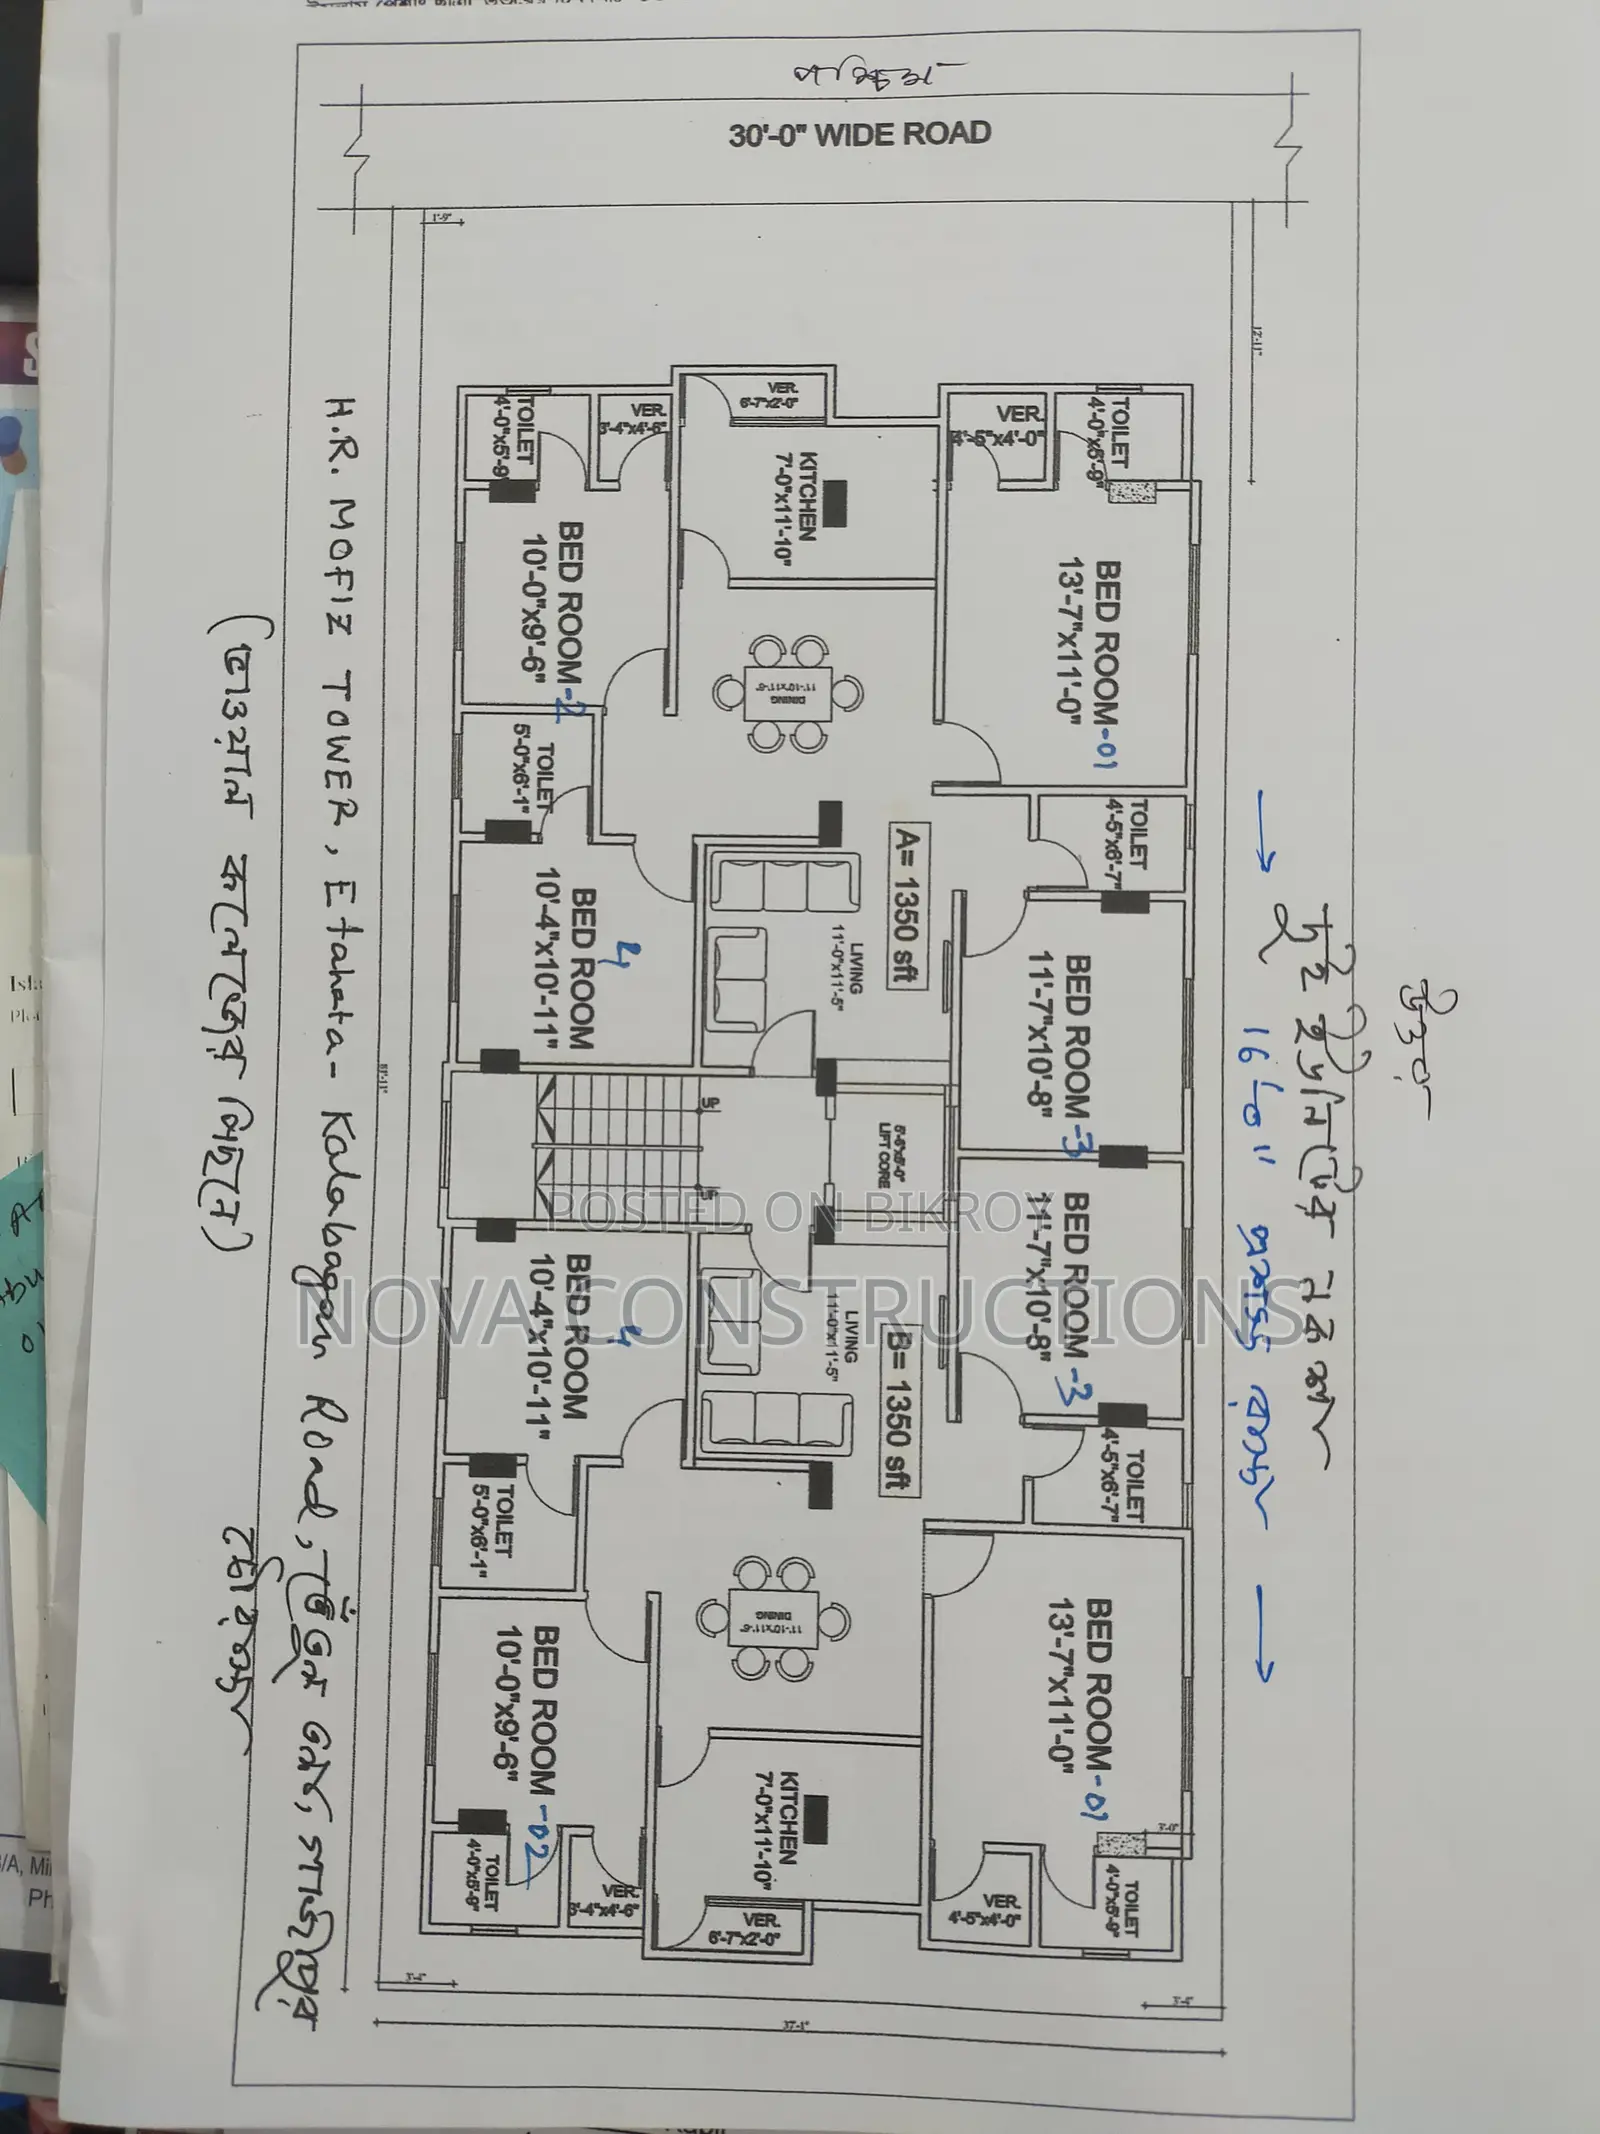 পশ্চিম
30'-0" WIDE ROAD
1'-9"
12'-11"
TOILET
4'-0"x5'-9"
VER.
3'-4"x4'-6"
VER.
6'-7"x2'-0"
KITCHEN
7'-0"x11'-10"
VER.
4'-5"x4'-0"
TOILET
4'-0"x5'-9"
BED ROOM-2
10'-0"x9'-6"
BED ROOM-01
13'-7"x11'-0"
DINING
11'-10x11'-6"
TOILET
5'-0"x6'-1"
TOILET
4'-5"x6'-7"
A= 1350 sft
BED ROOM 4
10'-4"x10'-11"
LIVING
11'-0"x11'-5"
BED ROOM-3
11'-7"x10'-8"
UP
UP
5'-6"x6'-0"
LIFT CORE
BED ROOM 4
10'-4"x10'-11"
LIVING
11'-0"x11'-5"
B= 1350 sft
BED ROOM-3
11'-7"x10'-8"
TOILET
5'-0"x6'-1"
TOILET
4'-5"x6'-7"
DINING
11'-10x11'-6"
BED ROOM-02
10'-0"x9'-6"
KITCHEN
7'-0"x11'-10"
BED ROOM-01
13'-7"x11'-0"
3'-0"
TOILET
4'-0"x5'-9"
VER.
3'-4"x4'-6"
VER.
6'-7"x2'-0"
VER.
4'-5"x4'-0"
TOILET
4'-0"x5'-9"
37'-1"
উত্তর
দুই ইউনিটের নকশা
16'-0"
H.R. MOFIZ TOWER, Etahata- Kalabagan Road,
POSTED ON BIKROY
NOVA CONSTRUCTIONS